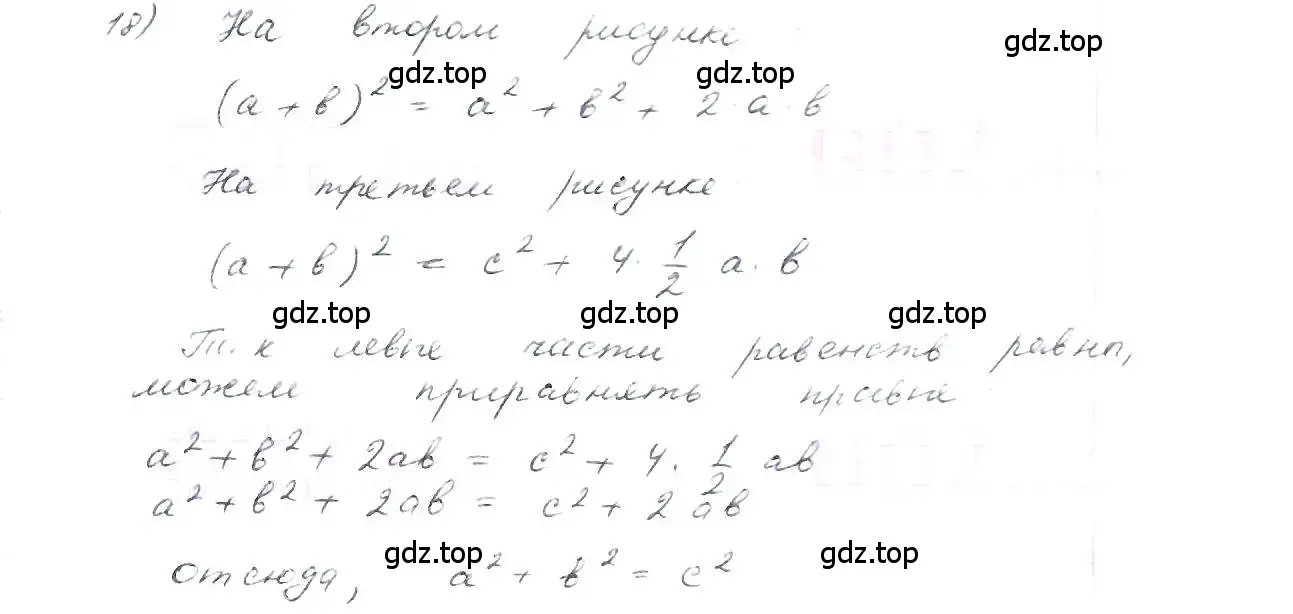 18) На втором рисунке
gdz.top
gdz.top gdz.top
(a + в)² = a² + в² + 2·a·в
На третьем рисунке
(a + в)² = c² + 4·1/2 a·в
gdz.top gdz.top
Т.к левые части равенств равны,
можем приравнять правые
a² + в² + 2aв = c² + 4·1/2 aв
a² + в² + 2aв = c² + 2aв
gdz.top gdz.top
отсюда, a² + в² = c²